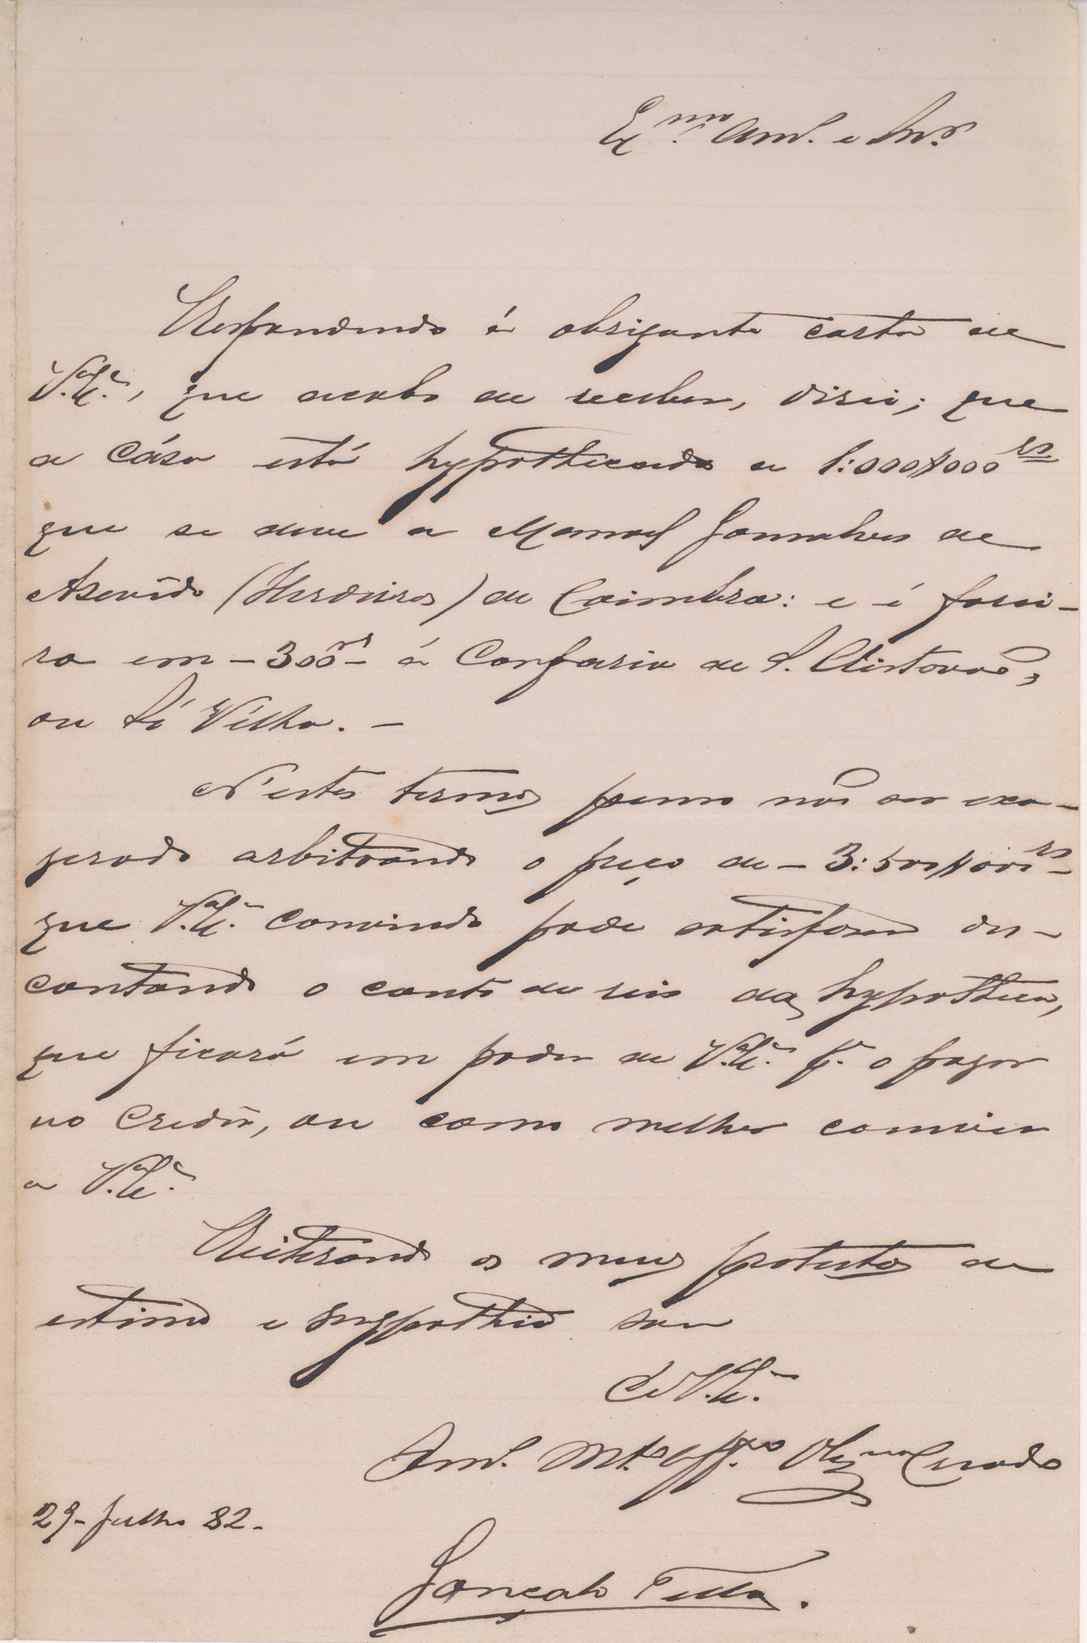 Ex.mo Am.º e Snr.
Respondendo á obrigante carta de
V. Ex.ª, que acabo de receber, direi; que
a cása está hypothecada a 1:000$000 rs.
que se deve a Manoel Gonsalves de
Azevêdo (Herdeiros) de Coimbra: e é forei-
ra em - 300 rs - á Confraria de S. Christovão,
ou Sé Vélha. -
N'estes termos penso não ser exa-
gerado arbitrando o preço de - 3:500$000 rs -
que V. Ex.ª convindo póde satisfazer des-
contando o conto de reis da hypotheca,
que ficará em poder de V. Ex.ª p.ª o pagar
ao Credôr, ou como melhor convier
a V. Ex.ª
Reiterando os meus protestos de
estima e sympathia sou
De V. Ex.ª
Am.º Mt.º Aff.çoo Obg.mo Creado
29 - Julho 82 -
Gonçalo Tello.